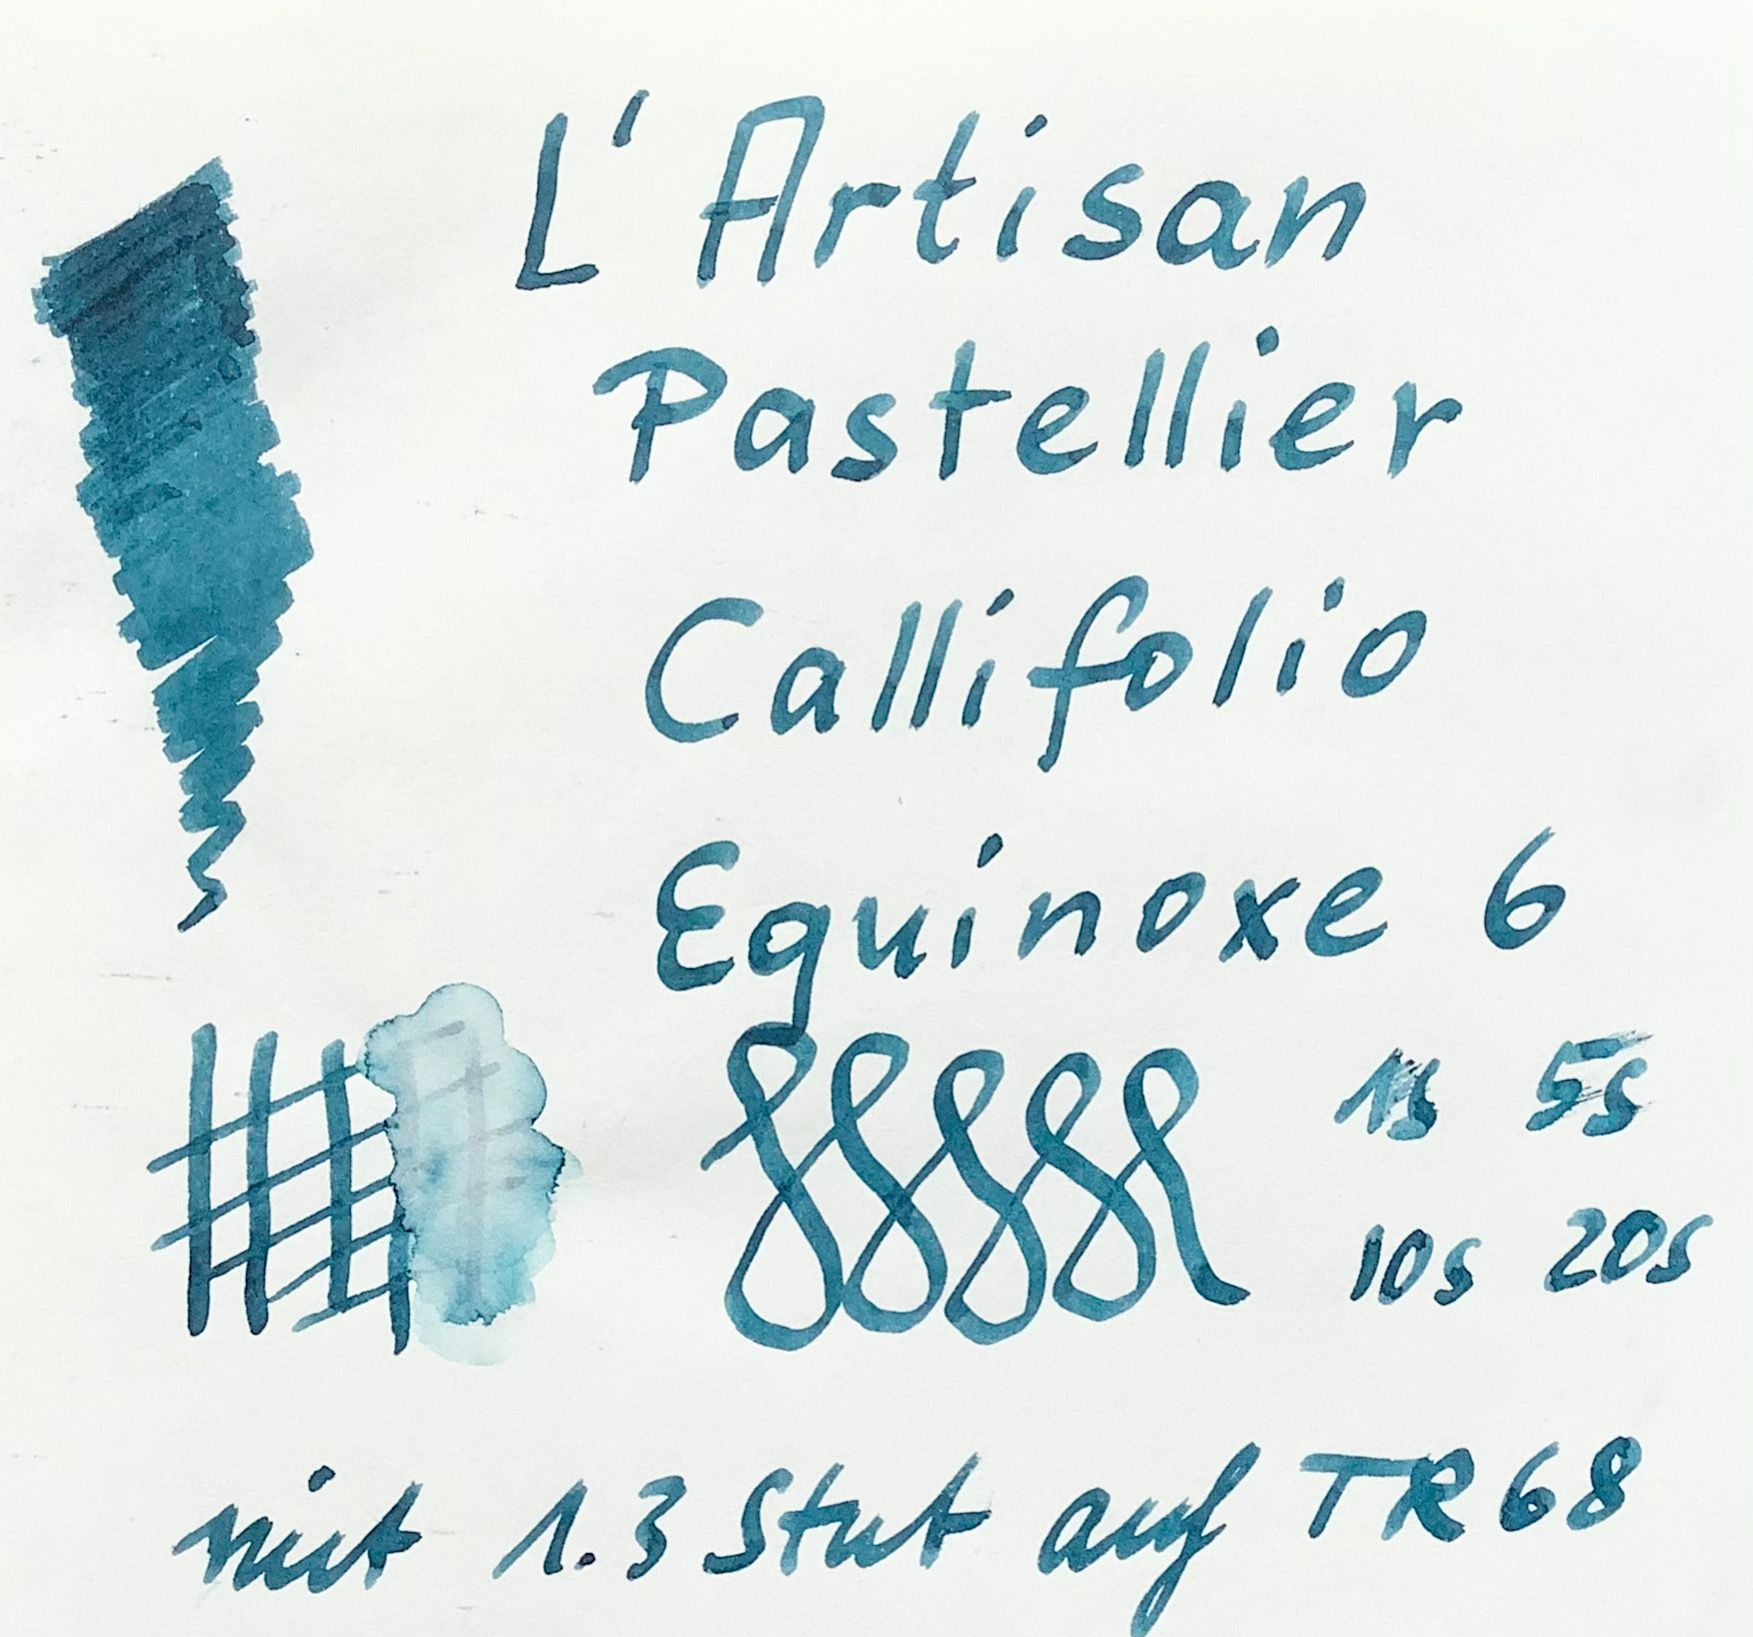 L'Artisan
Pastellier
Callifolio
Equinoxe 6
1s 5s
10s 20s
mit 1.3 Stub auf TR68